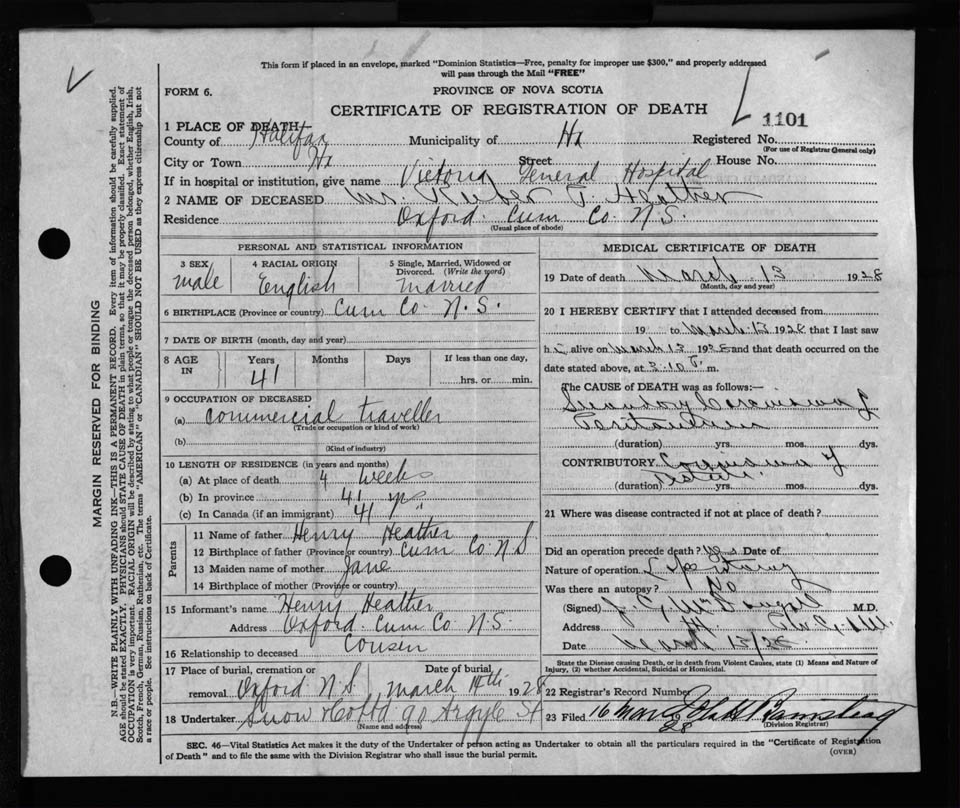 This form if placed in an envelope, marked "Dominion Statistics—Free, penalty for improper use $300," and properly addressed
will pass through the Mail "FREE"
FORM 6.
PROVINCE OF NOVA SCOTIA
CERTIFICATE OF REGISTRATION OF DEATH
1101
1 PLACE OF DEATH—
County of Halifax Municipality of Hx Registered No.
(For use of Registrar General only)
City or Town Hx Street House No.
If in hospital or institution, give name Victoria General Hospital
2 NAME OF DECEASED Mr. F. Heather
Residence Oxford Cum Co. N.S.
(Usual place of abode)
PERSONAL AND STATISTICAL INFORMATION
3 SEX 4 RACIAL ORIGIN 5 Single, Married, Widowed or
Divorced. (Write the word)
male English married
6 BIRTHPLACE (Province or country) Cum Co. N.S.
7 DATE OF BIRTH (month, day and year)
8 AGE IN Years Months Days If less than one day,
41 hrs. or min.
9 OCCUPATION OF DECEASED
(a) commercial traveller
(Trade or occupation or kind of work)
(b)
(Kind of industry)
10 LENGTH OF RESIDENCE (in years and months)
(a) At place of death 4 weeks
(b) In province 41 yrs
(c) In Canada (if an immigrant) 41
Parents
11 Name of father Henry Heather
12 Birthplace of father (Province or country) Cum Co N S
13 Maiden name of mother Jane
14 Birthplace of mother (Province or country)
15 Informant's name Henry Heather
Address Oxford Cum Co N.S.
16 Relationship to deceased Cousen
17 Place of burial, cremation or Date of burial,
removal Oxford N S march 14th 1928
18 Undertaker Snow & Co Ltd 90 Argyle St
(Name and address)
MEDICAL CERTIFICATE OF DEATH
19 Date of death March 13 1928
(Month, day and year)
20 I HEREBY CERTIFY that I attended deceased from
19 to March 13 1928 that I last saw
h alive on March 13 1928 and that death occurred on
date stated above, at 2:10 P. m.
The CAUSE OF DEATH was as follows:—
(duration) yrs. mos. dys.
CONTRIBUTORY
(duration) yrs. mos. dys.
21 Where was disease contracted if not at place of death?
Did an operation precede death? Yes Date of
Nature of operation
Was there an autopsy? No
(Signed) M.D.
Address
Date March 13/28
State the Disease causing Death, or in death from Violent Causes, state (1) Means and Nature of
Injury, (2) whether Accidental, Suicidal or Homicidal.
22 Registrar's Record Number
23 Filed 16 Mar 1928
(Division Registrar)
SEC. 46—Vital Statistics Act makes it the duty of the Undertaker or person acting as Undertaker to obtain all the particulars required in the "Certificate of Registration
of Death" and to file the same with the Division Registrar who shall issue the burial permit.
(OVER)
MARGIN RESERVED FOR BINDING
N.B.—WRITE PLAINLY WITH UNFADING INK—THIS IS A PERMANENT RECORD. Every item of information should be carefully supplied.
AGE should be stated EXACTLY. PHYSICIANS should STATE CAUSE OF DEATH in plain terms, so that it may be properly classified. Exact statement of
OCCUPATION is very important. RACIAL ORIGIN will be described by stating to what people or tongue the deceased person belonged, whether English, Irish,
Scotch, French, German, Russian, Ruthenian, etc. The terms "AMERICAN" or "CANADIAN" SHOULD NOT BE USED as they express citizenship but not
a race or people. See instructions on back of Certificate.